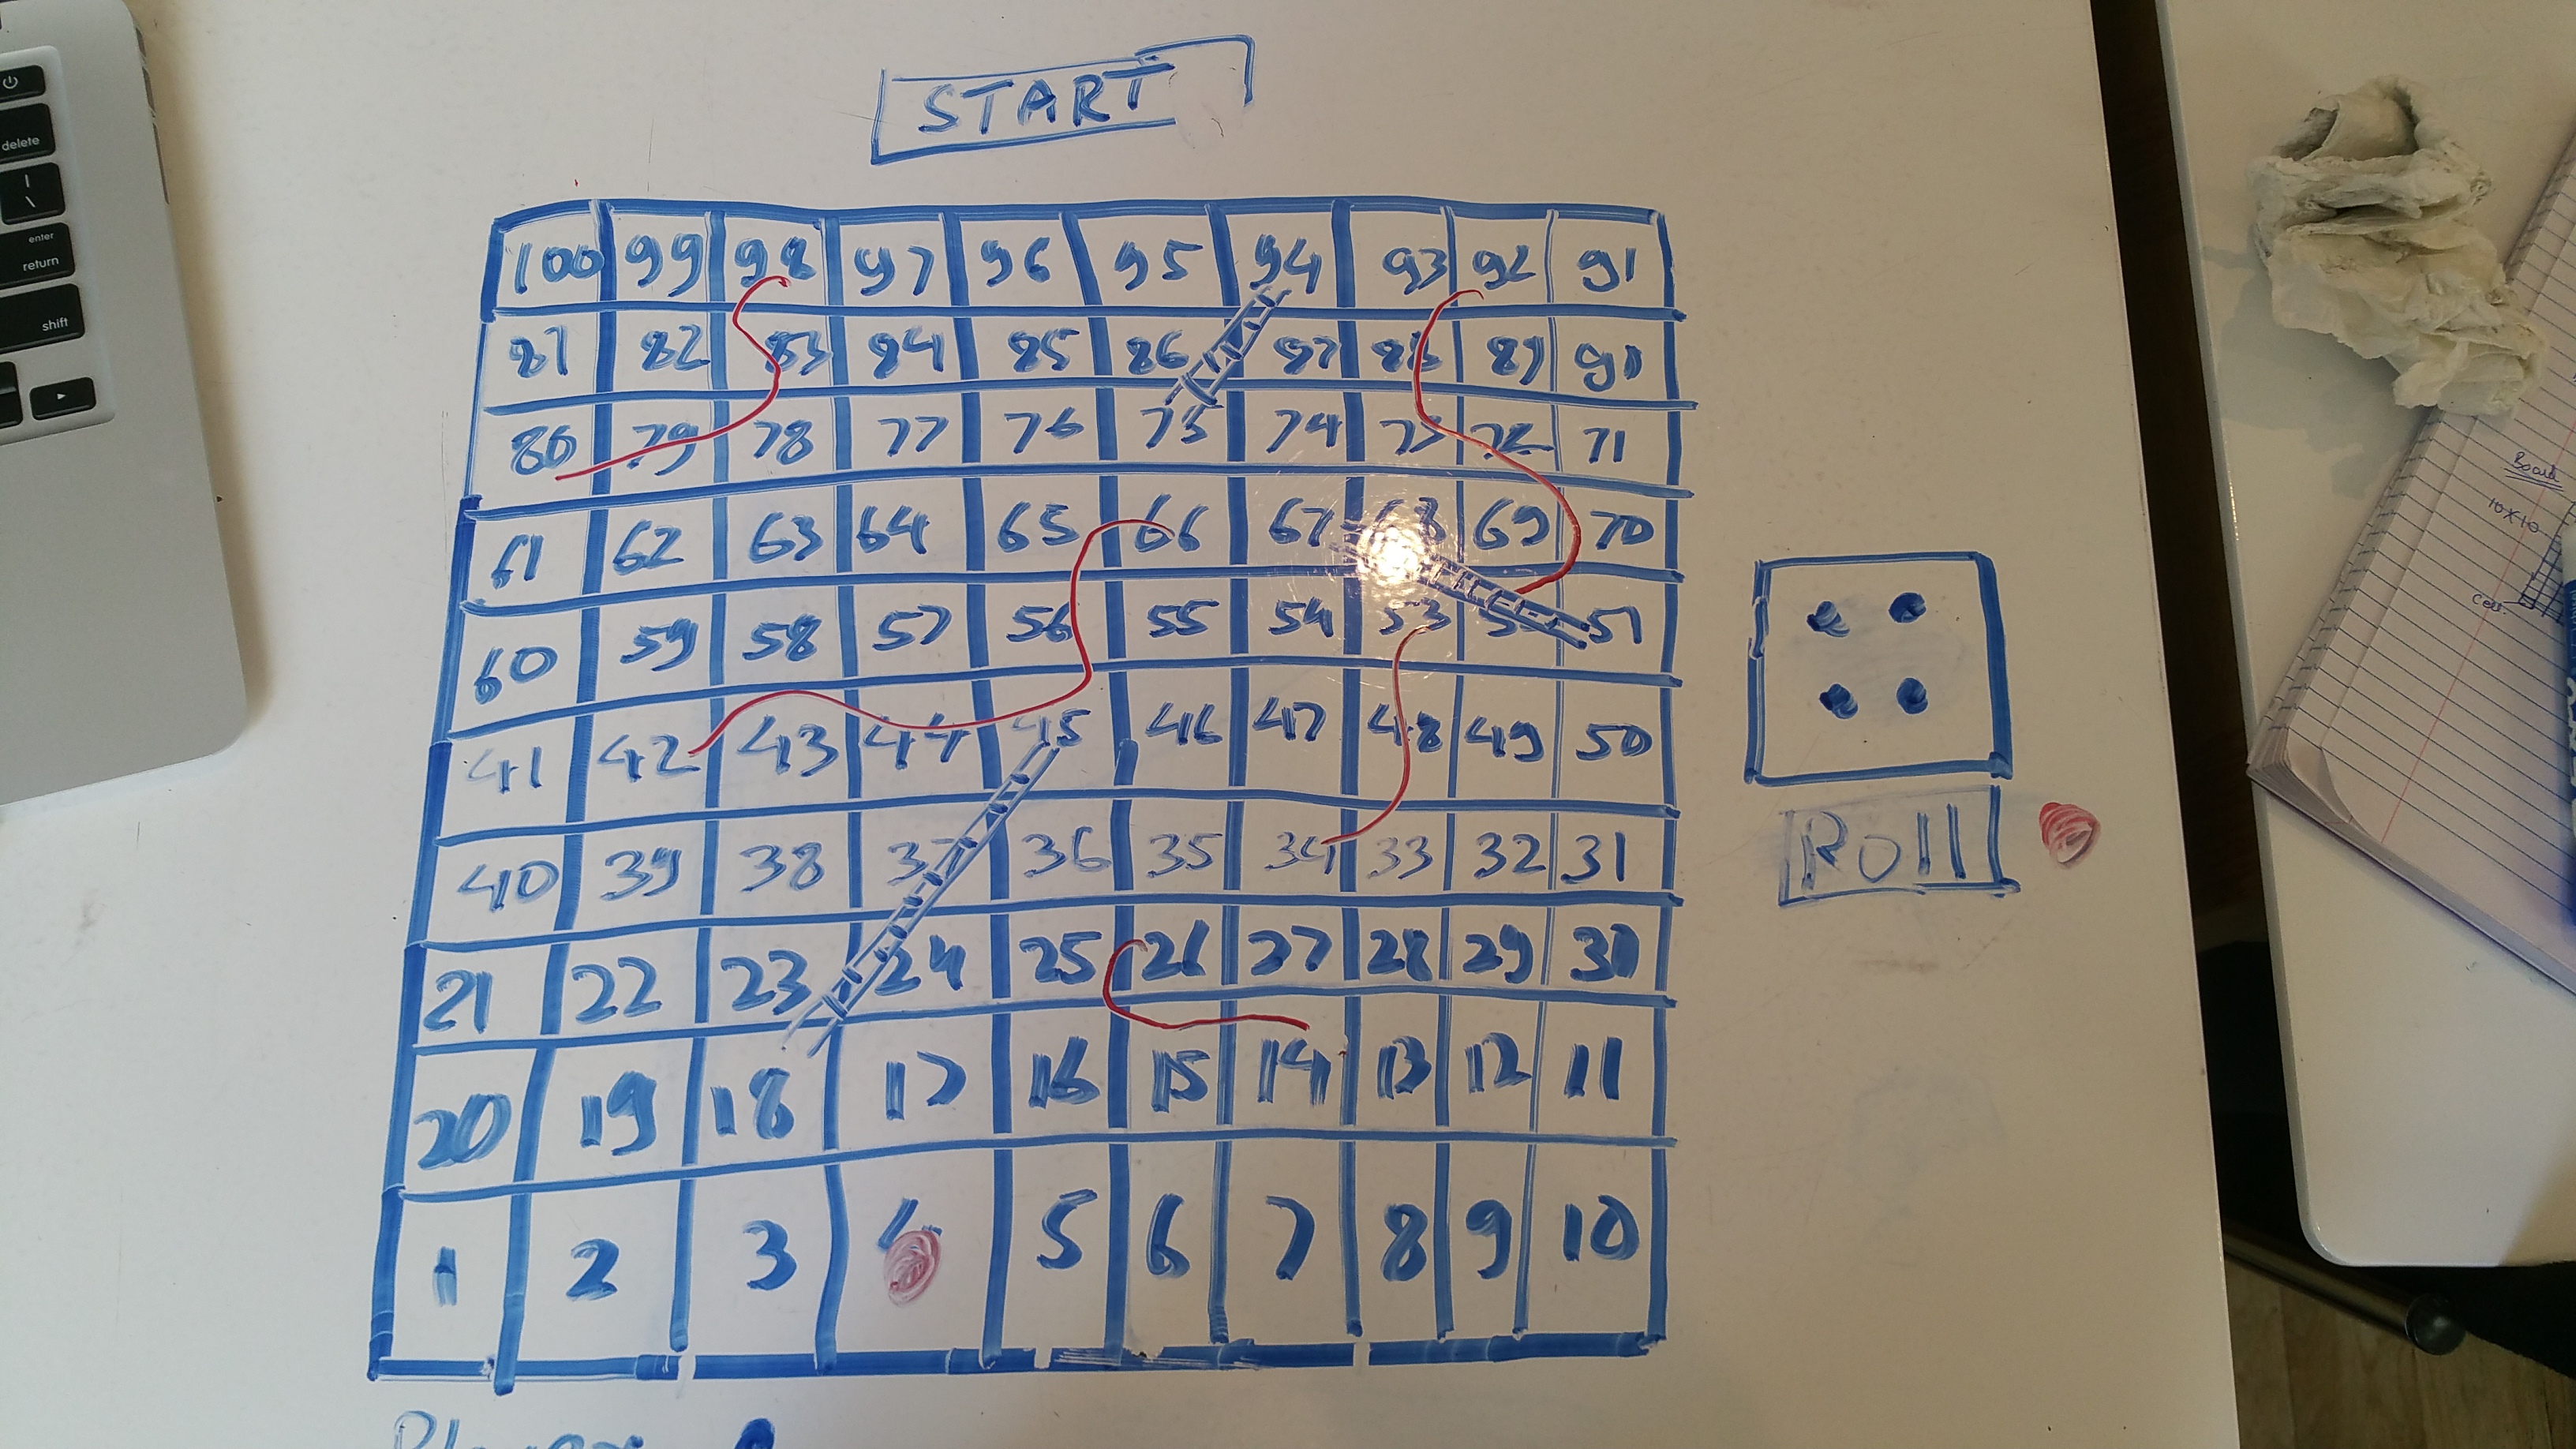 START
100 99 98 97 96 95 94 93 92 91
81 82 83 84 85 86 87 88 89 90
80 79 78 77 76 75 74 73 72 71
61 62 63 64 65 66 67 68 69 70
60 59 58 57 56 55 54 53 52 51
41 42 43 44 45 46 47 48 49 50
40 39 38 37 36 35 34 33 32 31
21 22 23 24 25 26 27 28 29 30
20 19 18 17 16 15 14 13 12 11
1 2 3 4 5 6 7 8 9 10
Roll
delete
enter
return
shift
Board
10X10